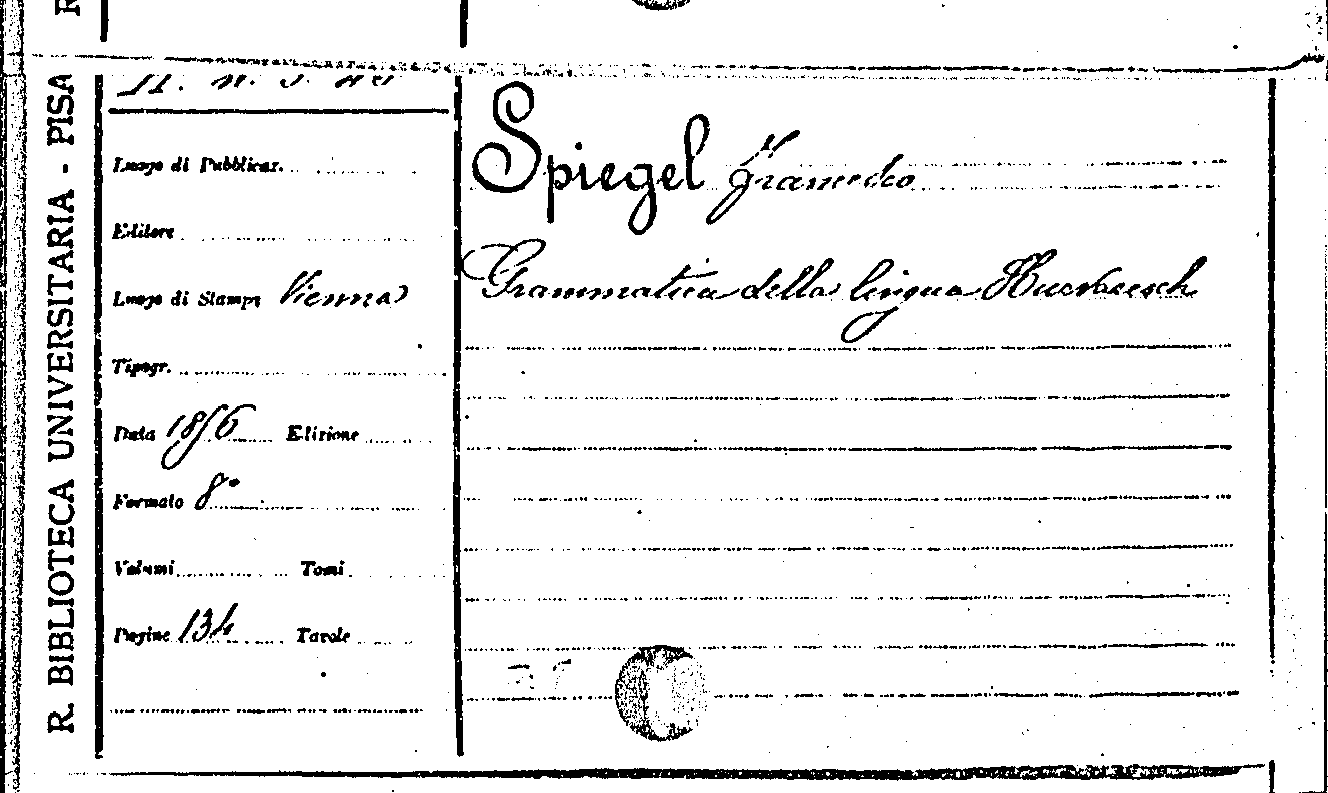 R. BIBLIOTECA UNIVERSITARIA - PISA
Luogo di Pubblicaz.
Editore
Luogo di Stampa Vienna
Tipogr.
Data 1856 Edizione
Formato 8°
Volumi Tomi
Pagine 134 Tavole
Spiegel Francesco
Grammatica della lingua Huzvaresch